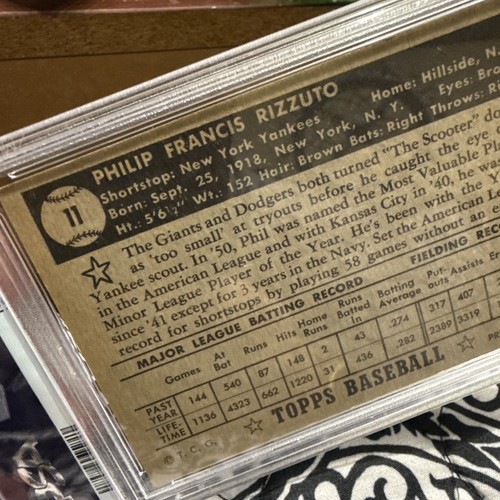 11
PHILIP FRANCIS RIZZUTO
Shortstop: New York Yankees Home: Hillside, N
Born: Sept. 25, 1918, New York, N. Y. Eyes: Bro
Ht.: 5'6½" Wt.: 152 Hair: Brown Bats: Right Throws: Ri
The Giants and Dodgers both turned "The Scooter" do
as 'too small' at tryouts before he caught the eye
Yankee scout. In '50, Phil was named the Most Valuable Pla
in the American League and with Kansas City in '40, he wa
Minor League Player of the Year. He's been with the Y
since '41 except for 3 years in the Navy. Set the American L
record for shortstops by playing 58 games without an e
MAJOR LEAGUE BATTING RECORD FIELDING RECO
Games At Bat Runs Hits Home Runs Runs Batted In Batting Average Put-outs Assists Er
PAST YEAR 144 540 87 148 2 43 .274 317 407
LIFE-TIME 1136 4323 662 1220 31 436 .282 2389 3319
TOPPS BASEBALL
© T. C. G.